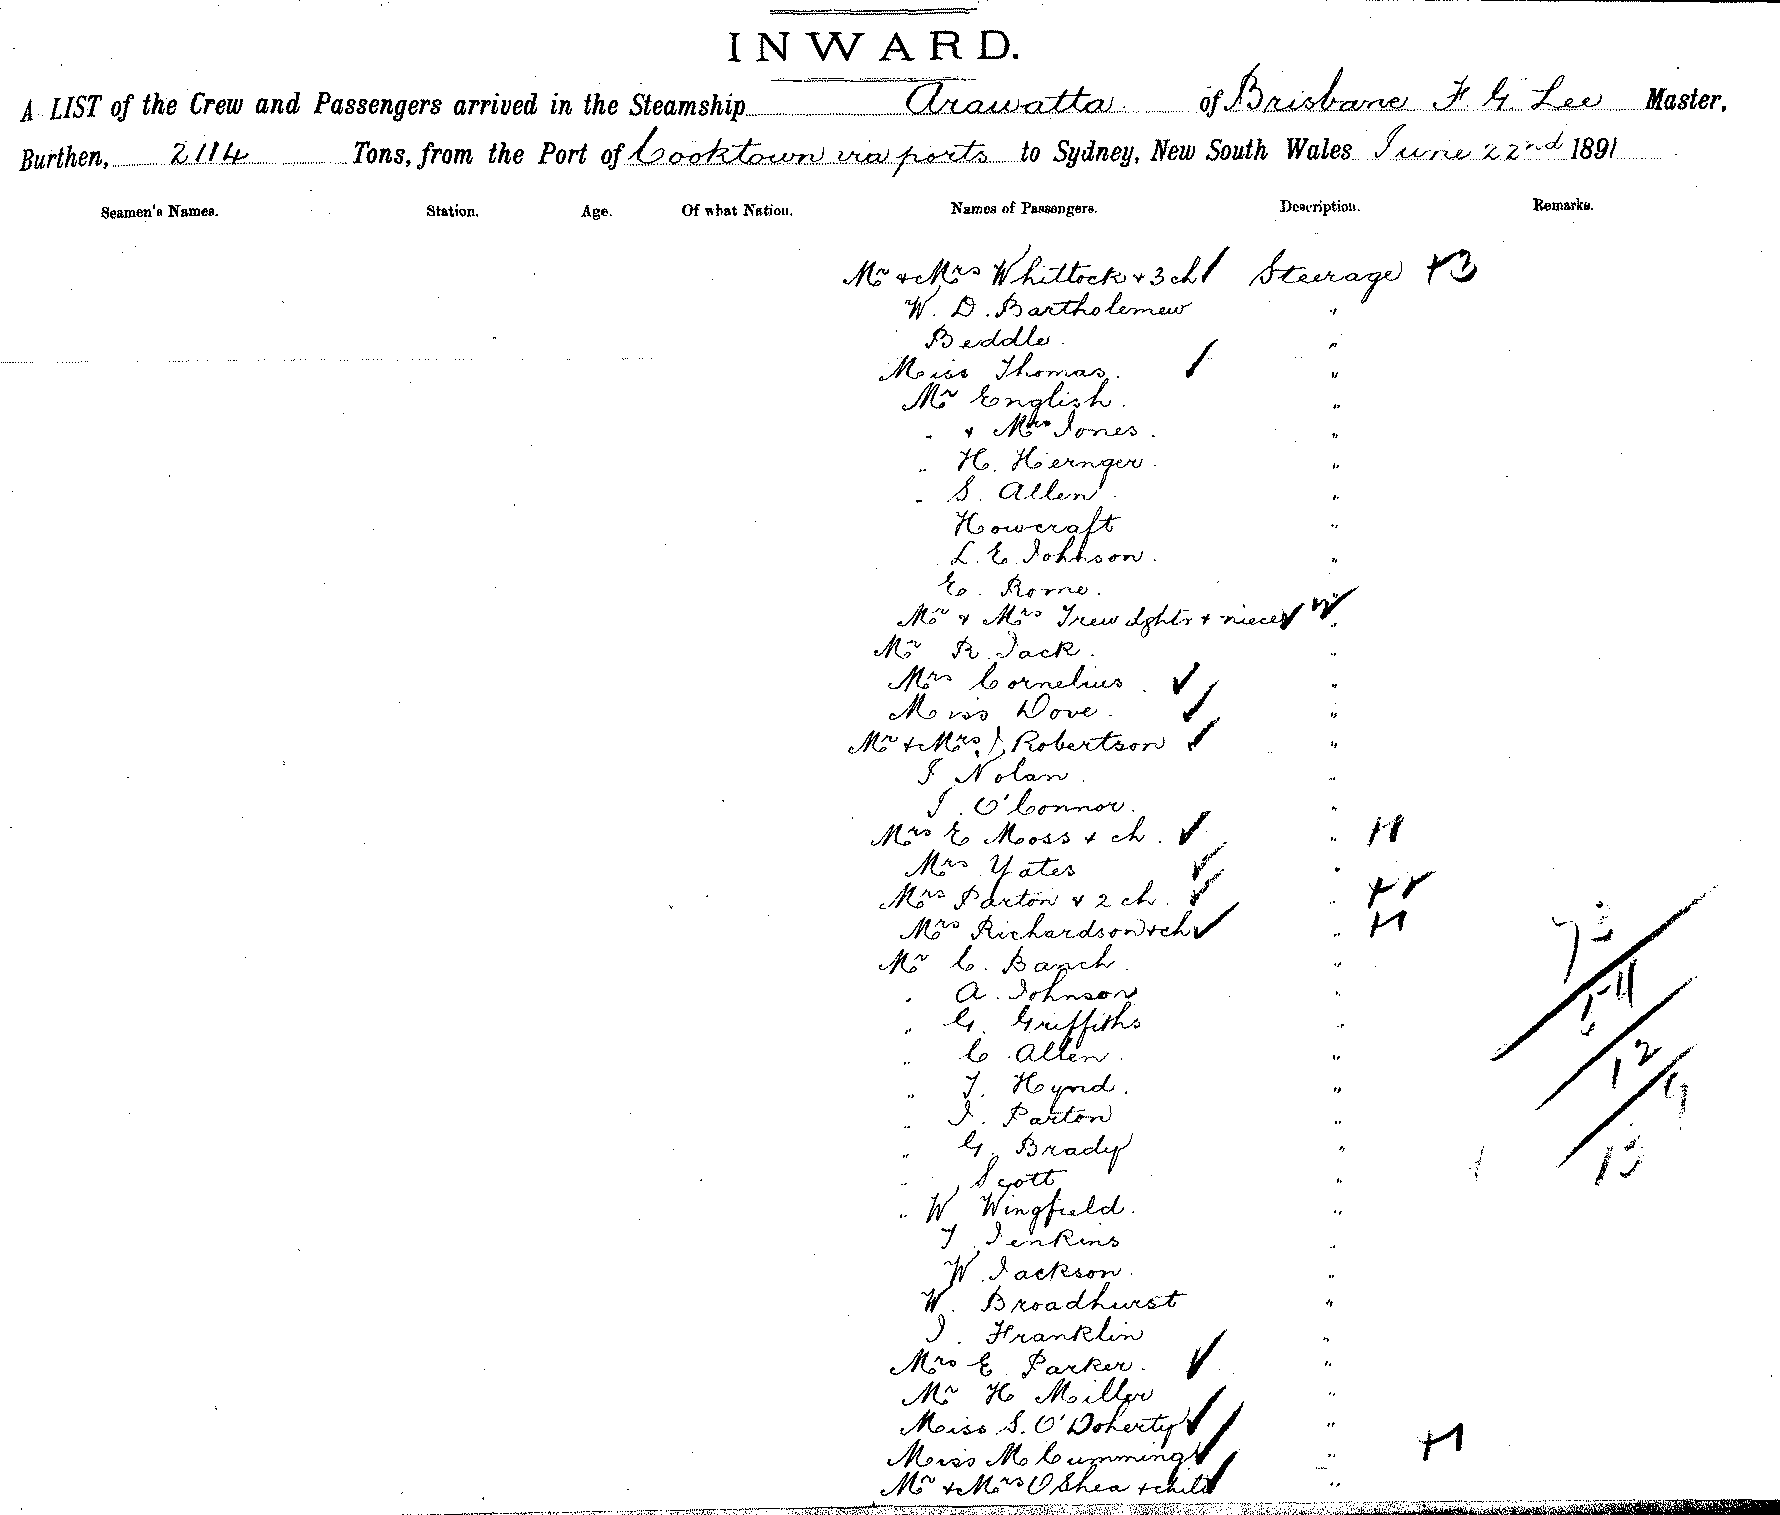 INWARD.
A LIST of the Crew and Passengers arrived in the Steamship Arawatta of Brisbane F G. Lee Master,
Burthen, 2114 Tons, from the Port of Cooktown via ports to Sydney, New South Wales June 22nd 1891
Seamen's Names. Station. Age. Of what Nation. Names of Passengers. Description. Remarks.
Mr + Mrs Whittock + 3 ch Steerage +3
W. D. Bartholemew "
Beddle "
Miss Thomas. "
Mr English. "
" + Mrs Jones. "
" H. Hernger. "
" S. Allen. "
Howcraft "
L. E. Johnson. "
E. Rome. "
Mr + Mrs Trew dghtr + niece "
Mr R. Jack. "
Mrs Cornelius. "
Miss Dove. "
Mr + Mrs J Robertson "
J Nolan. "
J. O'Connor. "
Mrs E Moss + ch. " +1
Mrs Yates "
Mrs Parton + 2 ch. "
Mrs Richardson + ch " +1
Mr C. Banch. "
" A. Johnson "
" G. Griffiths "
" C. Allen. "
" T. Hynd. "
" J. Parton "
" G. Brady "
" Scott "
" W Wingfield. "
T. Jenkins "
W. Jackson. "
W. Broadhurst "
J. Franklin "
Mrs E Parker. "
Mr H Miller "
Miss S. O'Doherty "
Miss M Cumming " +1
Mr + Mrs O'Shea + child "